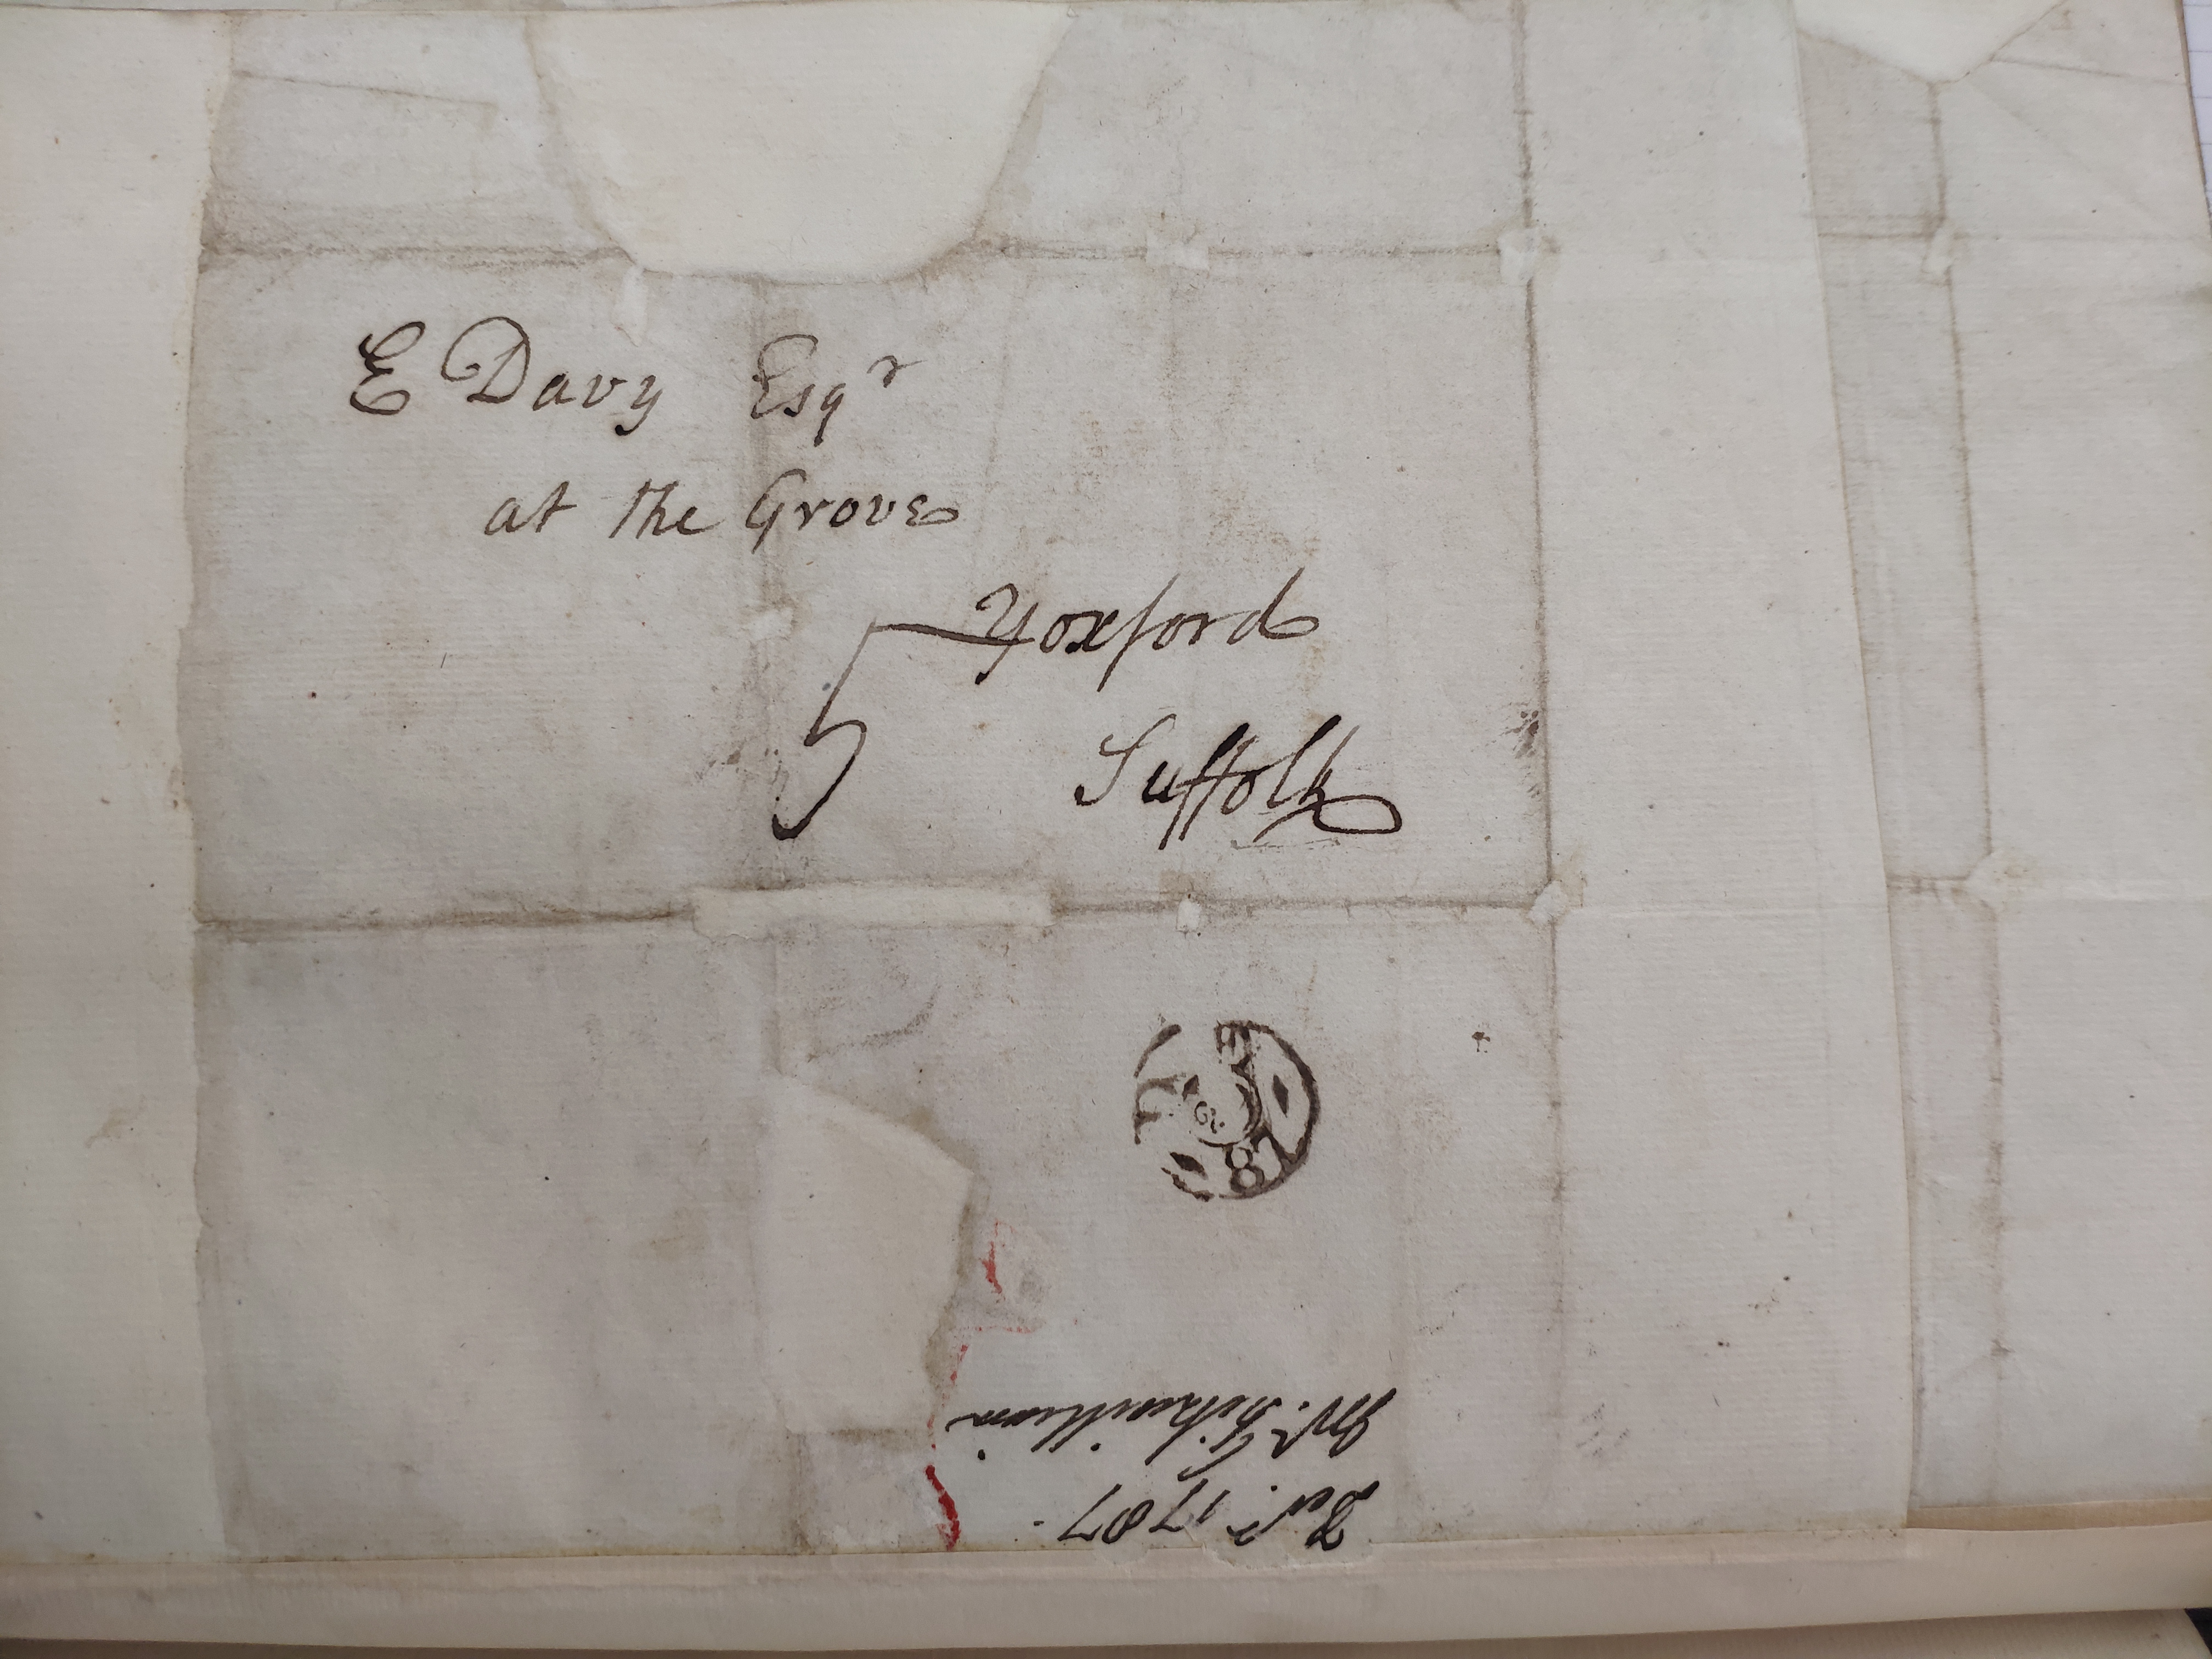 E Davy Esqr
at the Grove
Yoxford
5
Suffolk
87
Mr. Fitzwilliam
Decr. 1787.